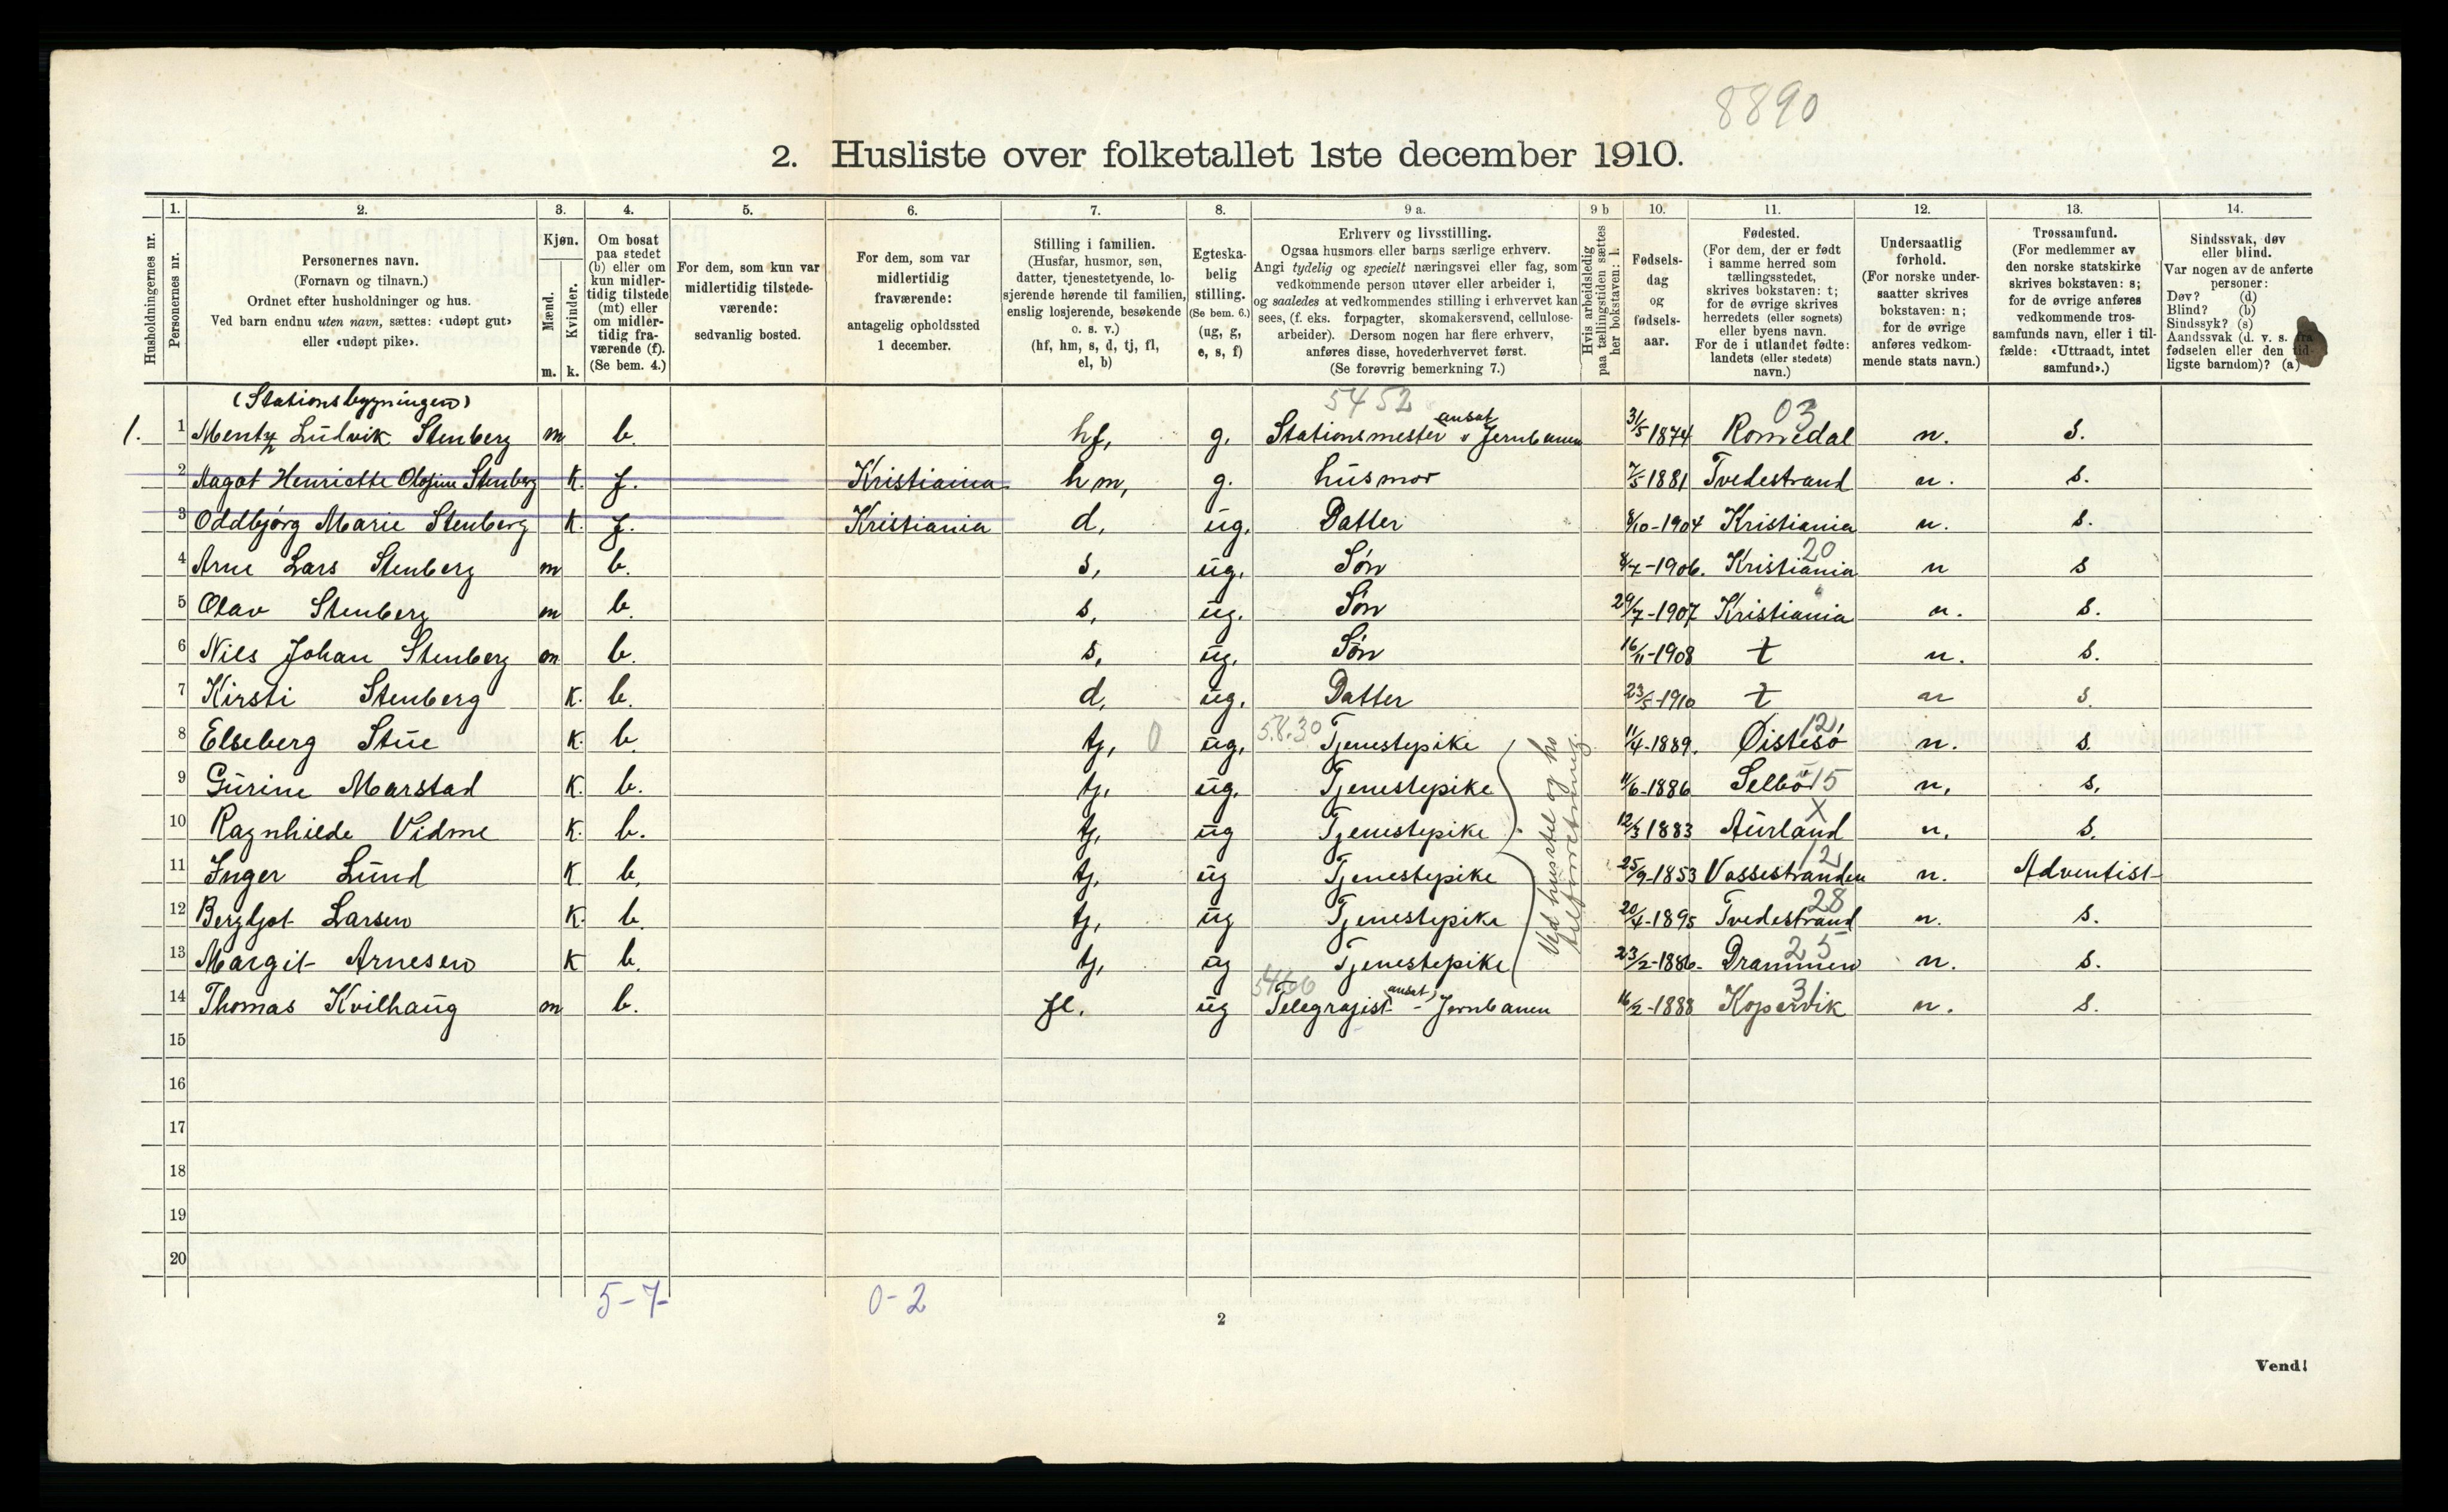 8890
2. Husliste over folketallet 1ste december 1910.
1. 2. 3. 4. 5. 6. 7. 8. 9 a. 9 b 10. 11. 12. 13. 14.
Husholdningernes nr.
Personernes nr.
Personernes navn.
(Fornavn og tilnavn.)
Ordnet efter husholdninger og hus.
Ved barn endnu uten navn, sættes: «udøpt gut»
eller «udøpt pike».
Kjøn.
Mænd.
Kvinder.
m. k.
Om bosat
paa stedet
(b) eller om
kun midler-
tidig tilstede
(mt) eller
om midler-
tidig fra-
værende (f).
(Se bem. 4.)
For dem, som kun var
midlertidig tilstede-
værende:
sedvanlig bosted.
For dem, som var
midlertidig
fraværende:
antagelig opholdssted
1 december.
Stilling i familien.
(Husfar, husmor, søn,
datter, tjenestetyende, lo-
sjerende hørende til familien,
enslig losjerende, besøkende
o. s. v.)
(hf, hm, s, d, tj, fl,
el, b)
Egteska-
belig
stilling.
(Se bem. 6.)
(ug, g,
e, s, f)
Erhverv og livsstilling.
Ogsaa husmors eller barns særlige erhverv.
Angi tydelig og specielt næringsvei eller fag, som
vedkommende person utøver eller arbeider i,
og saaledes at vedkommendes stilling i erhvervet kan
sees, (f. eks. forpagter, skomakersvend, cellulose-
arbeider). Dersom nogen har flere erhverv,
anføres disse, hovederhvervet først.
(Se forøvrig bemerkning 7.)
Hvis arbeidsledig
paa tællingstiden sættes
her bokstaven: l.
Fødsels-
dag
og
fødsels-
aar.
Fødested.
(For dem, der er født
i samme herred som
tællingsstedet,
skrives bokstaven: t;
for de øvrige skrives
herredets (eller sognets)
eller byens navn.
For de i utlandet fødte:
landets (eller stedets)
navn.)
Undersaatlig
forhold.
(For norske under-
saatter skrives
bokstaven: n;
for de øvrige
anføres vedkom-
mende stats navn.)
Trossamfund.
(For medlemmer av
den norske statskirke
skrives bokstaven: s;
for de øvrige anføres
vedkommende tros-
samfunds navn, eller i til-
fælde: «Uttraadt, intet
samfund».)
Sindssvak, døv
eller blind.
Var nogen av de anførte
personer:
Døv? (d)
Blind? (b)
Sindssyk? (s)
Aandssvak (d. v. s. fra
fødselen eller den tid-
ligste barndom)? (a)
(Stationsbygningen) 5452 03
1. 1 Mentz Ludvik Stenberg m b. hf, g. Stationsmester ansat v Jernbanen 31/5 1874 Romedal n. s.
2 Aagot Henriette Olefine Stenberg K. f. Kristiania hm, g. husmor 7/5-1881 Tvedestrand n. s.
3 Oddbjørg Marie Stenberg K. f. Kristiania d, ug. Datter 8/10-1904 Kristiania n. s.
4 Arne Lars Stenberg m b. s, ug. Søn 8/4-1906. Kristiania 20 n s
5 Olav Stenberg m b. s, ug. Søn 29/7-1907 Kristiania n. s.
6 Nils Johan Stenberg m b. s, ug. Søn 16/11-1908 t n. s.
7 Kirsti Stenberg K. b. d, ug. Datter 23/5-1910 t n s.
8 Elseberg Stue K. b. tj, 0 ug, 58.30 Tjenestepike 11/4-1889. Øistesø 12 n. s.
9 Gurine Marstad K. b. tj, ug. Tjenestepike 11/6-1886 Selbø 15 n, s,
10 Ragnhilde Vidme K. b. tj, ug Tjenestepike 12/3 1883 Aurland X n, s.
11 Inger Lund K. b, tj, ug Tjenestepike 25/9-1853 Vossestranden 12 n. Adventist
12 Bergljot Larsen K. b. tj, ug Tjenestepike 20/4-1895 Tvedestrand 28 n. s.
13 Margit Arnesen K b. tj, ug Tjenestepike 23/2-1886- Drammen 25 n. s.
Ved husstel og ho
telforretning.
14 Thomas Kvilhaug m b. fl. ug 5466 Telegrafist ansat - Jernbanen 16/2-1888 Kopervik 31 n. s.
15
16
17
18
19
20
5-7- 0-2
2
Vend!